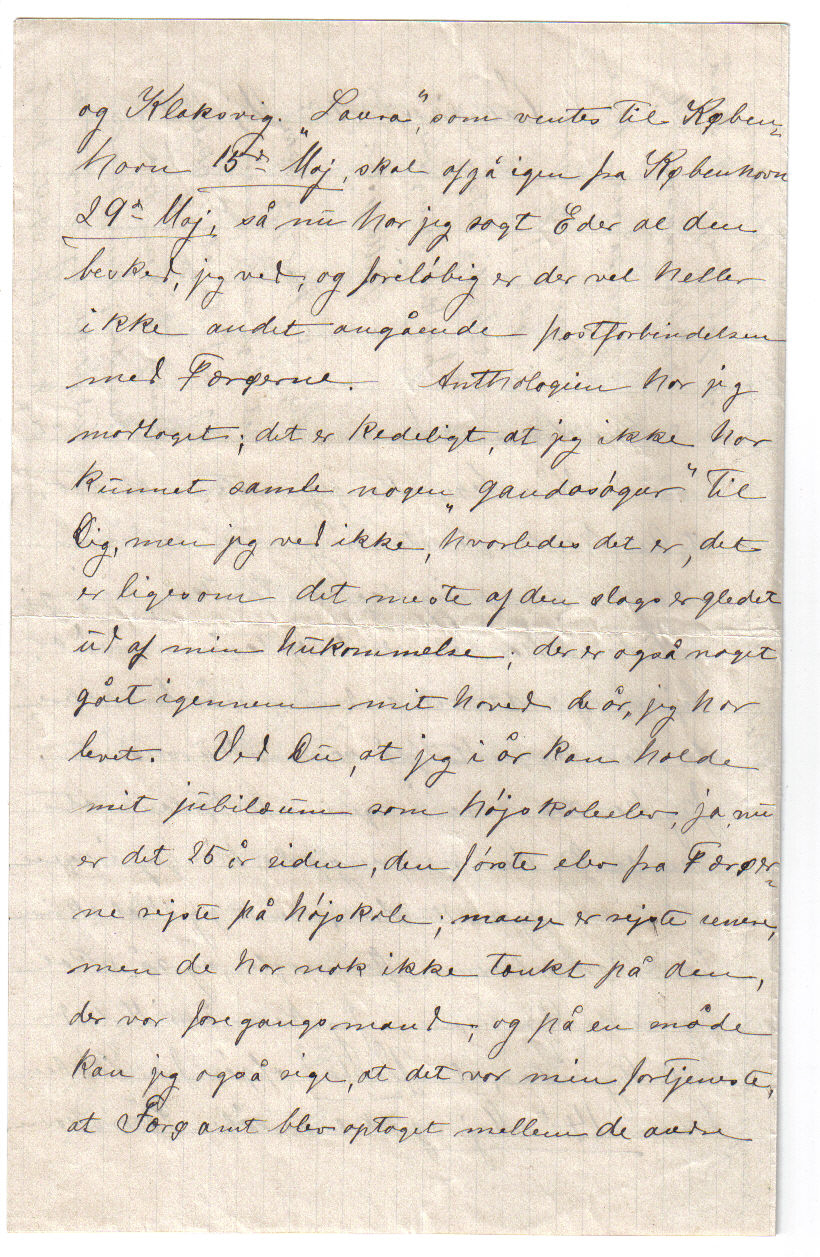 og Klaksvig. "Laura", som ventes til Køben-
havn 15d Maj, skal afgå igen fra København
29d Maj, så nu har jeg sagt Eder al den
besked, jeg ved, og foreløbig er der vel heller
ikke andet angående postforbindelsen
med Færøerne. Anthologien har jeg
modtaget; det er kedeligt, at jeg ikke har
kunnet samle nogen "gandasögur" til
Dig, men jeg ved ikke, hvorledes det er, det
er ligesom det meste af den slags er gledet
ud af min hukommelse; der er også noget
gået igennem mit hoved de år, jeg har
levet. Ved Du, at jeg i år kan holde
mit jubilæum som højskoleelev, ja, nu
er det 25 år siden, den første elev fra Færøer-
ne rejste på højskole; mange er rejste senere,
men de har nok ikke tænkt på den,
der var foregangsmand, og på en måde
kan jeg også sige, at det var min fortjeneste,
at Færø amt blev optaget mellem de andre